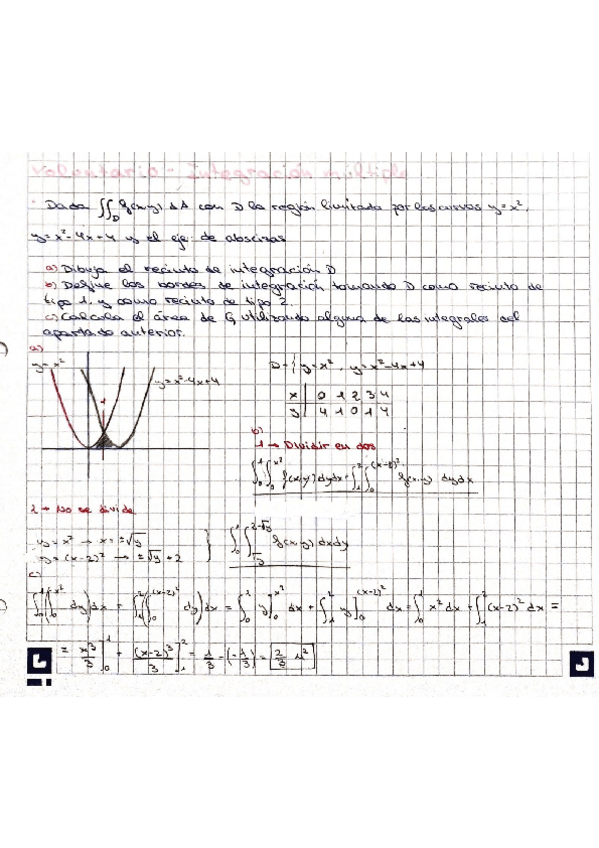 Voluntario - Integración múltiple
Dada ∬_D f(x,y) dA con D la región limitada por las curvas y=x²,
y=x²-4x+4 y el eje de abscisas
a) Dibuja el recinto de integración D
b) Define los bordes de integración tomando D como recinto de
tipo 1, y como recinto de tipo 2.
c) Calcula el área de G, utilizando alguna de las integrales del
apartado anterior.
a)
y=x²
y=x²-4x+4
1
D={y=x², y=x²-4x+4
x 0 1 2 3 4
y 4 1 0 1 4
b)
1 → Dividir en dos
∫₀¹∫₀^(x²) f(x,y) dydx + ∫₁²∫₀^((x-2)²) f(x,y) dydx
2 → No se divide
y=x² → x=±√y
y=(x-2)² → ±√y+2
∫₀¹∫_(√y)^(2-√y) f(x,y) dxdy
c)
∫₀¹(∫₀^(x²) dy)dx + ∫₁²(∫₀^((x-2)²) dy)dx = ∫₀¹ y]₀^(x²) dx + ∫₁² y]₀^((x-2)²) dx = ∫₀¹ x² dx + ∫₁² (x-2)² dx =
= x³/3]₀¹ + (x-2)³/3]₁² = 1/3 - (-1/3) = 2/3 u²